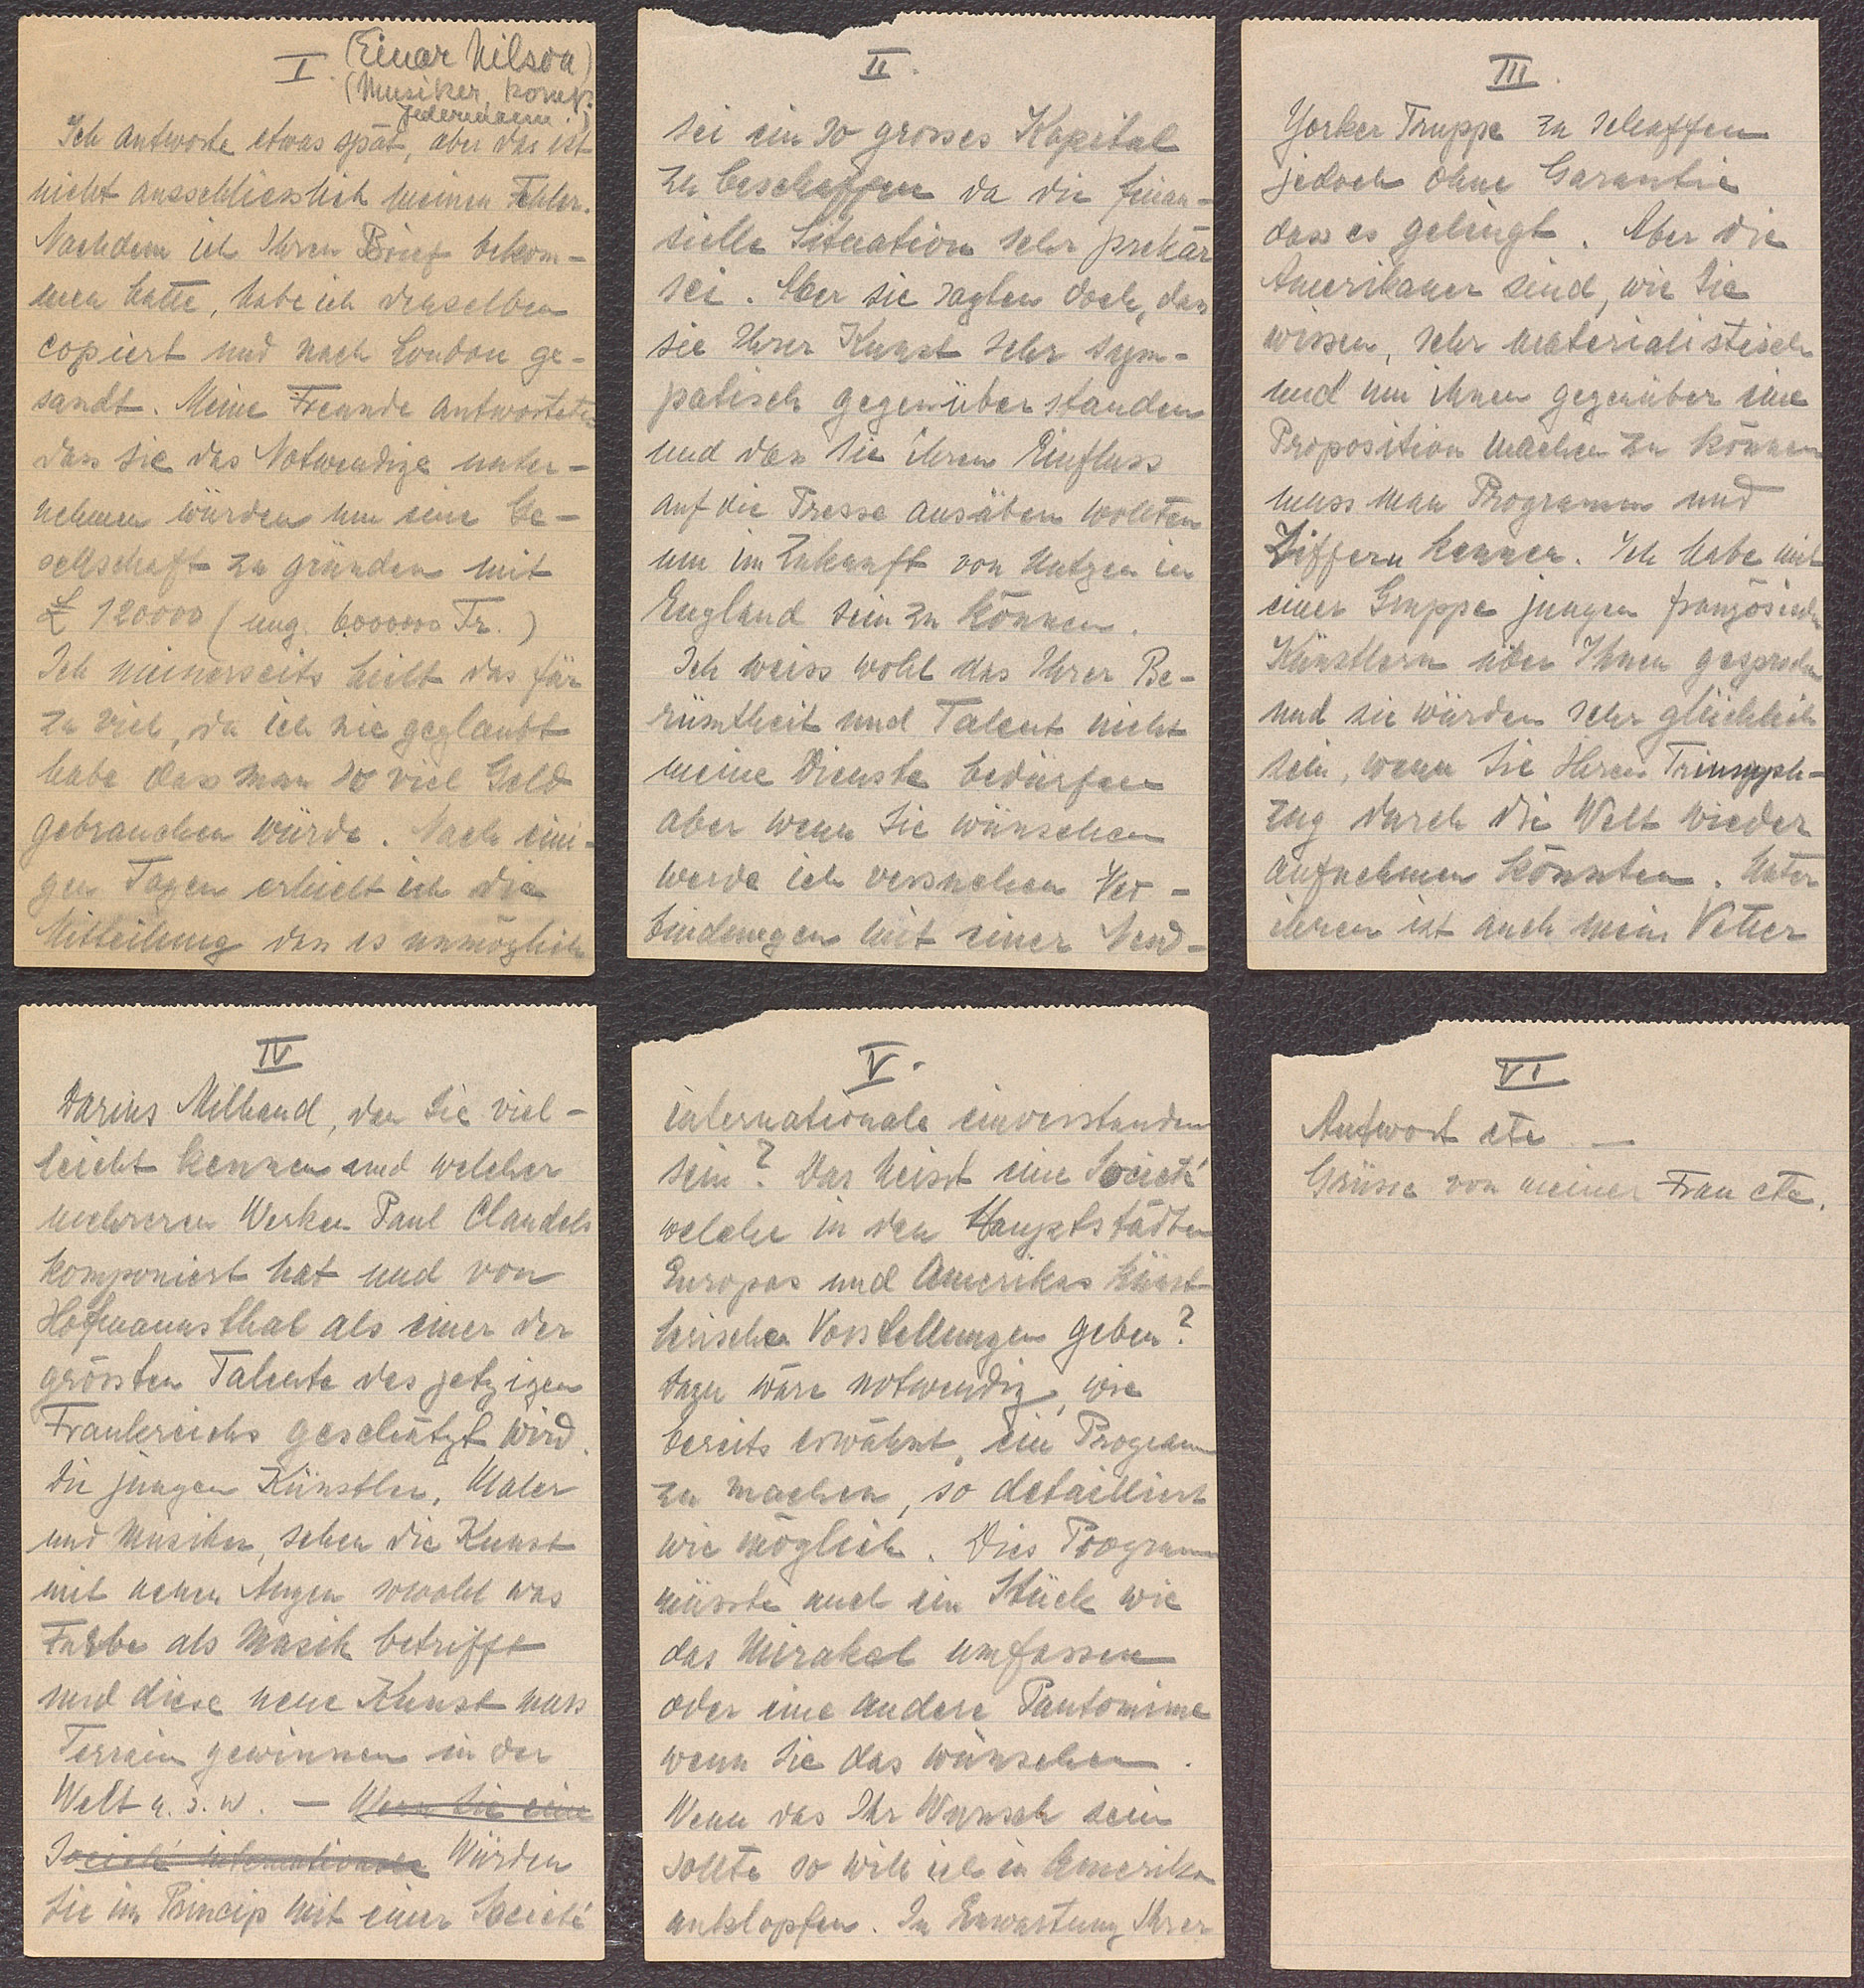 I. (Einar Nilson)
(Musiker, komp.
Jedermann.)
Ich antworte etwas spät, aber das ist
nicht ausschliesslich meinen Fehler.
Nachdem ich Ihren Brief bekom-
men hatte, habe ich denselben
copiert und nach London ge-
sandt. Meine Freunde antworteten
dass sie das Notwendige unter-
nehmen würden um eine Ge-
sellschaft zu gründen mit
£ 120000 (ung. 6.000000 Fr.)
Ich meinerseits hielt das für
zu viel, da ich nie geglaubt
habe dass man so viel Geld
gebrauchen würde. Nach eini-
gen Tagen erhielt ich die
Mitteilung dass es unmöglich
II.
sei ein so grosses Kapital
zu beschaffen da die finan-
sielle Situation sehr prekär
sei. Aber sie sagten doch, dass
sie Ihrer Kunst sehr sym-
patisch gegenüber standen
und dass sie ihren Einfluss
auf die Presse ausüben wollten
um im Zukunft von Nutzen in
England sein zu können.
Ich weiss wohl das Ihrer Be-
rümtheit und Talent nicht
meine Dienste bedürfen
aber wenn Sie wünschen
werde ich versuchen Ver-
bindungen mit einer New-
III.
Yorker Truppe zu schaffen
jedoch ohne Garantie
dass es gelingt. Aber die
Amerikaner sind, wie Sie
wissen, sehr materialistisch
und um ihnen gegenüber eine
Proposition machen zu können
muss man Programm und
Ziffern kennen. Ich habe mit
einer Gruppe jungen französischen
Künstlern über Ihnen gesprochen
und sie würden sehr glücklich
sein, wenn Sie Ihren Triumph-
zug durch die Welt wieder
aufnehmen könnten. Unter
ihnen ist auch mein Vetter
IV
Darius Milhaud, den Sie viel-
leicht kennen und welcher
mehreren Werken Paul Claudels
komponiert hat und von
Hofmannsthal als einer der
grössten Talente des jetzigen
Frankreichs geschätzt wird.
Die jungen Künstler, Maler
und Musiker, sehen die Kunst
mit neuen Augen sowohl was
Farbe als Musik betrifft
und diese neue Kunst muss
Terrain gewinnen in der
Welt u. s. w. — Wenn Sie eine
Societé internationale Würden
Sie im Princip mit einer Societé
V.
internationale einverstanden
sein? Das heisst eine Societé
welche in den Hauptstädten
Europas und Amerikas künst-
lerischen Vorstellungen geben?
Dazu wäre notwendig, wie
bereits erwähnt, ein Programm
zu machen, so detailliert
wie möglich. Dies Programm
müsste auch ein Stück wie
das Mirakel umfassen
oder eine andere Pantomime
wenn Sie das wünschen.
Wenn das Ihr Wunsch sein
sollte so will ich in Amerika
anklopfen. In Erwartung Ihrer
VI
Antwort etc. —
Grüsse von meiner Frau etc.